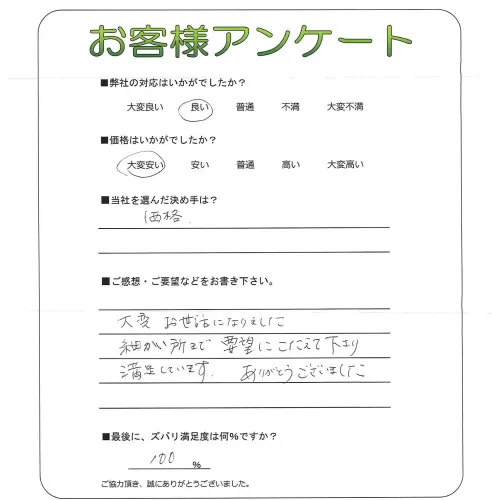 お客様アンケート
■弊社の対応はいかがでしたか?
大変良い 良い 普通 不満 大変不満
■価格はいかがでしたか?
大変安い 安い 普通 高い 大変高い
■当社を選んだ決め手は?
価格
■ご感想・ご要望などをお書き下さい。
大変 お世話になりました
細かい所まで 要望にこたえて下さり
満足しています. ありがとうございました
■最後に、ズバリ満足度は何%ですか?
100 %
ご協力頂き、誠にありがとうございました。